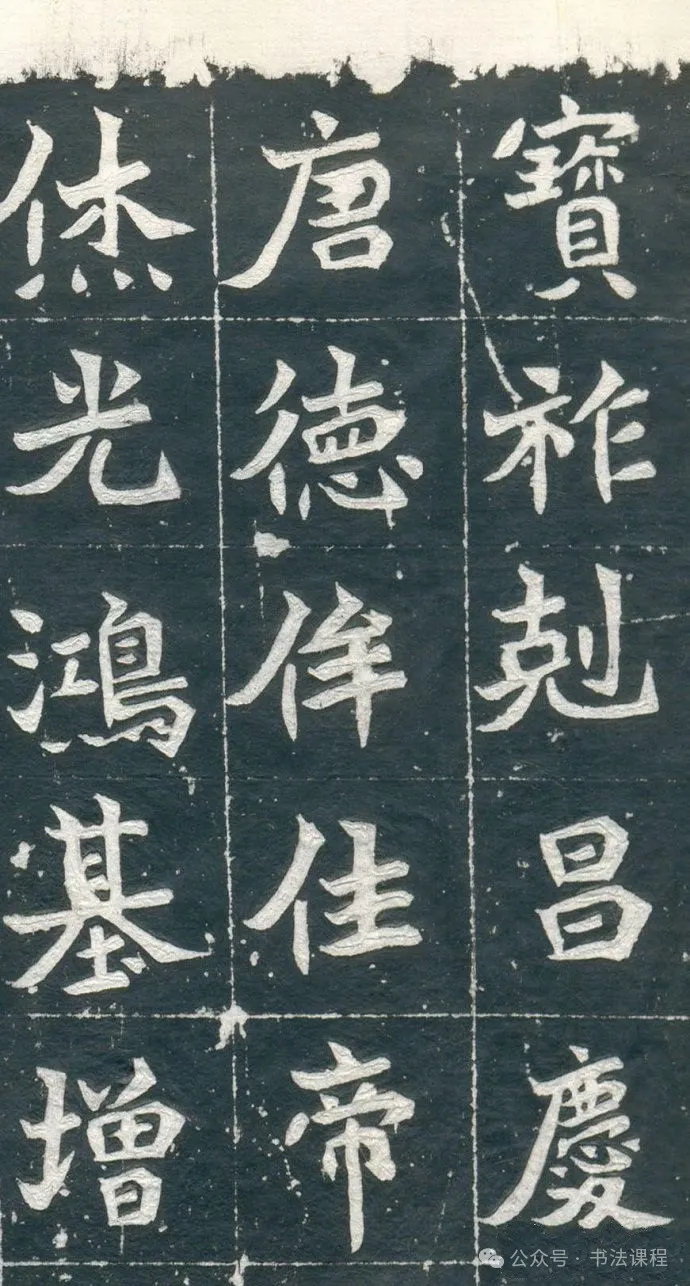 寶祚剋昌慶
唐德侔佳帝
烋光鴻基增
公众号 · 书法课程